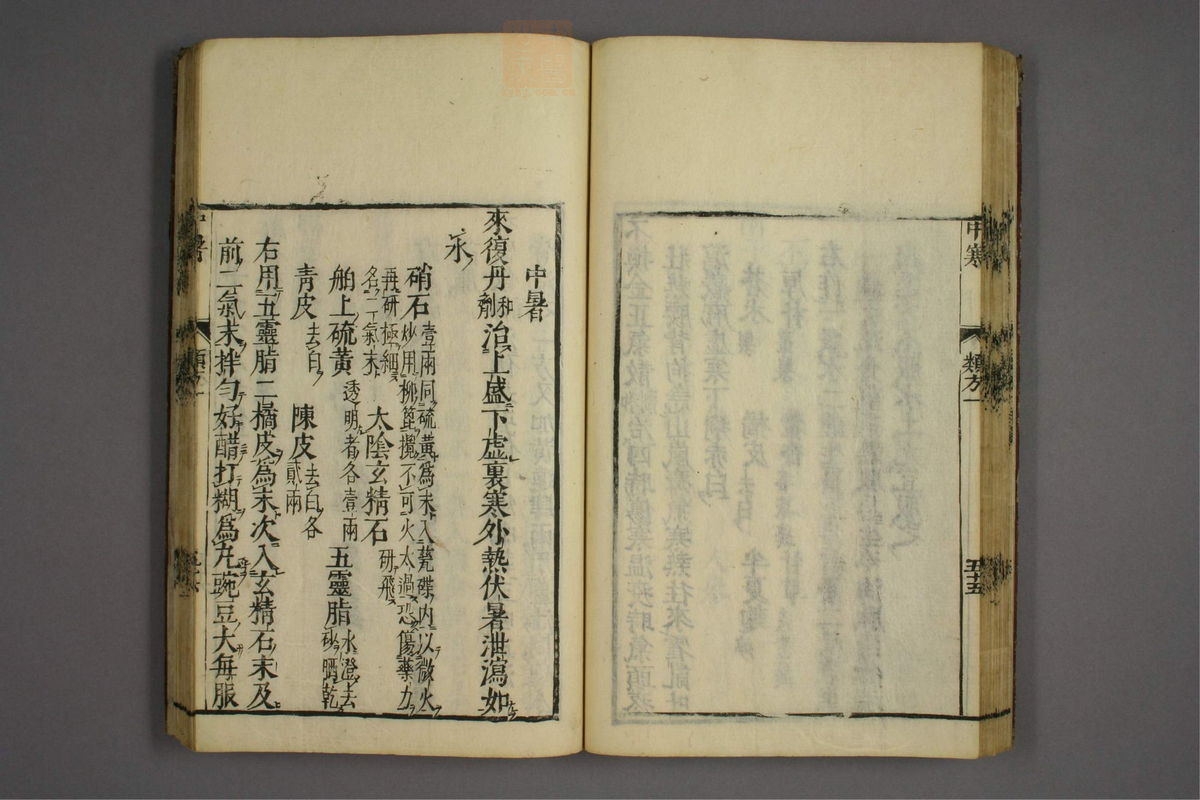 中寒
類方一
五十五
中暑
來復丹和劑治上盛下虛裏寒外熱伏暑泄瀉如
水
硝石壹兩同硫黃爲末入甆碟內以微火炒用柳篦攪不可火太過恐傷藥力
再研極細名二氣末太陰玄精石研飛
舶上硫黃透明者各壹兩五靈脂水澄去砂晒乾
青皮去白陳皮去白各貳兩
右用五靈脂二橘皮爲末次入玄精石末及
前二氣末拌勻好醋打糊爲丸豌豆大每服